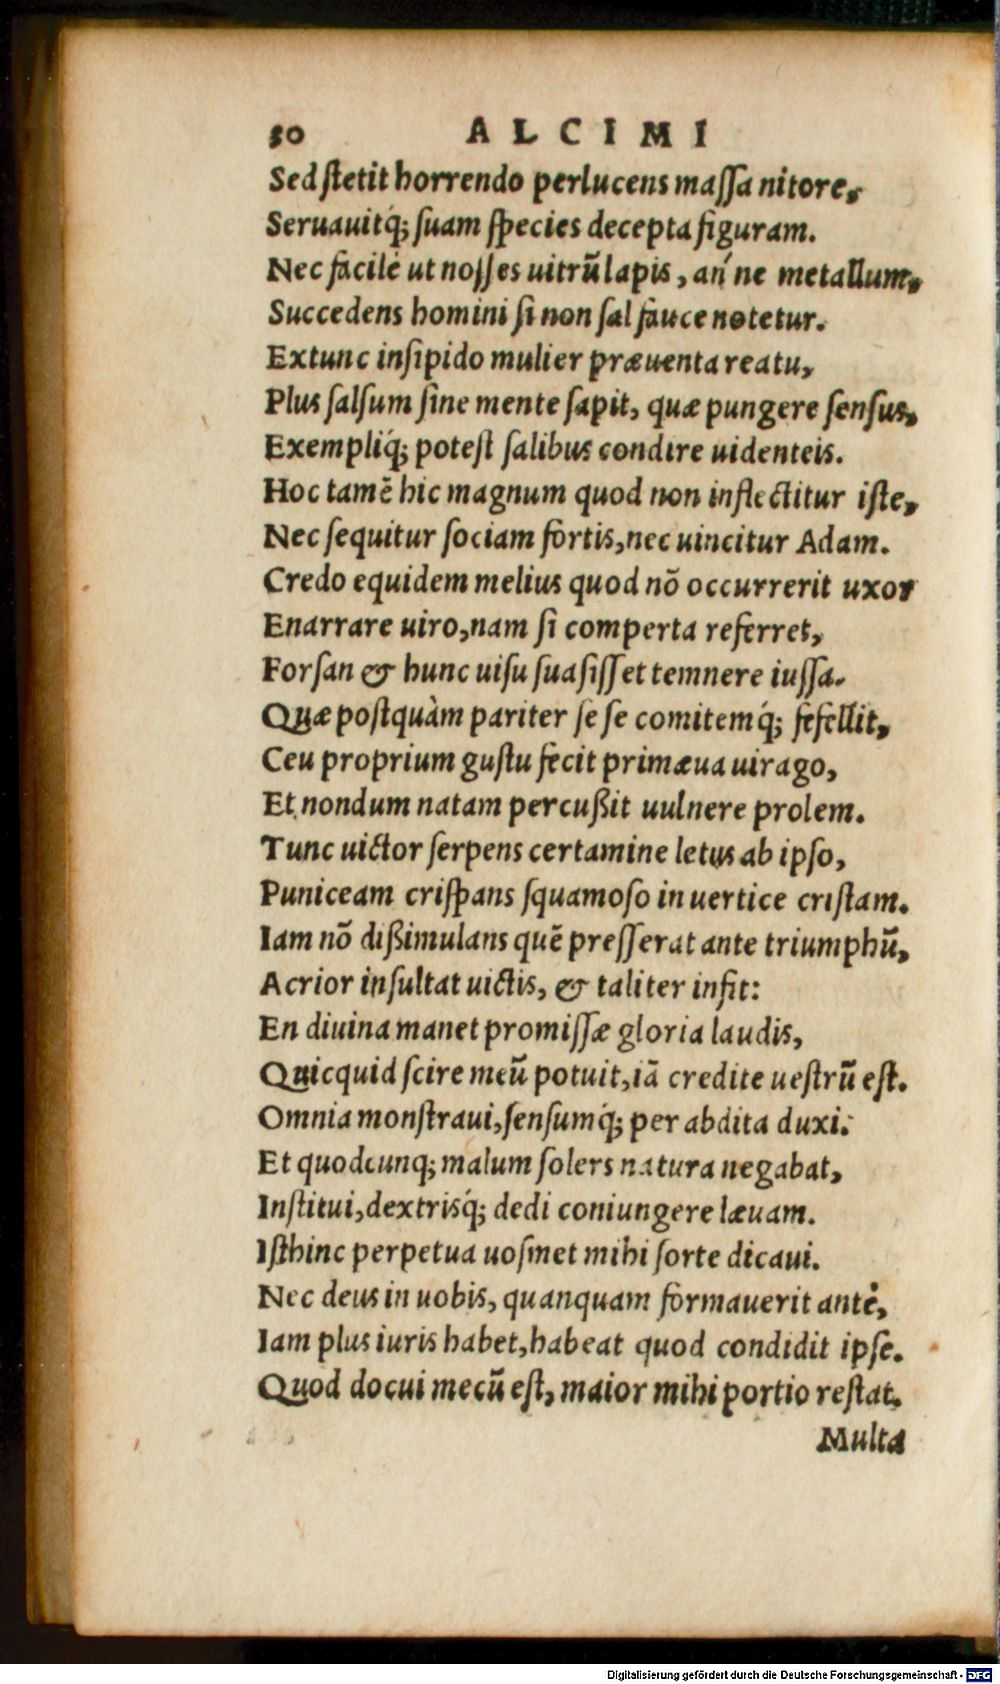 50 ALCIMI
Sed ſtetit horrendo perlucens maſſa nitore,
Seruauitq́; ſuam ſpecies decepta figuram.
Nec facilè ut noſſes uitrũ lapis, an' ne metallum,
Succedens homini ſi non ſal fauce notetur.
Extunc inſipido mulier præuenta reatu,
Plus ſalſum ſine mente ſapit, quæ pungere ſenſus,
Exempliq́; poteſt ſalibus condire uidenteis.
Hoc tamẽ hic magnum quod non inflectitur iſte,
Nec ſequitur ſociam fortis, nec uincitur Adam.
Credo equidem melius quod nõ occurrerit uxor
Enarrare uiro, nam ſi comperta referret,
Forſan & hunc uiſu ſuaſiſſet temnere iuſſa.
Quæ poſtquàm pariter ſe ſe comitemq́; fefellit,
Ceu proprium guſtu fecit primæua uirago,
Et nondum natam percußit uulnere prolem.
Tunc uictor ſerpens certamine letus ab ipſo,
Puniceam criſpans ſquamoſo in uertice criſtam.
Iam nõ dißimulans quẽ preſſerat ante triumphũ,
Acrior inſultat uictis, & taliter infit:
En diuina manet promiſſæ gloria laudis,
Quicquid ſcire meũ potuit, iã credite ueſtrũ eſt.
Omnia monſtraui, ſenſumq́; per abdita duxi.
Et quodcunq; malum ſolers natura negabat,
Inſtitui, dextrisq́; dedi coniungere læuam.
Iſthinc perpetua uoſmet mihi ſorte dicaui.
Nec deus in uobis, quanquam formauerit antè,
Iam plus iuris habet, habeat quod condidit ipſe.
Quod docui mecũ eſt, maior mihi portio reſtat.
Multa
Digitalisierung gefördert durch die Deutsche Forschungsgemeinschaft - DFG